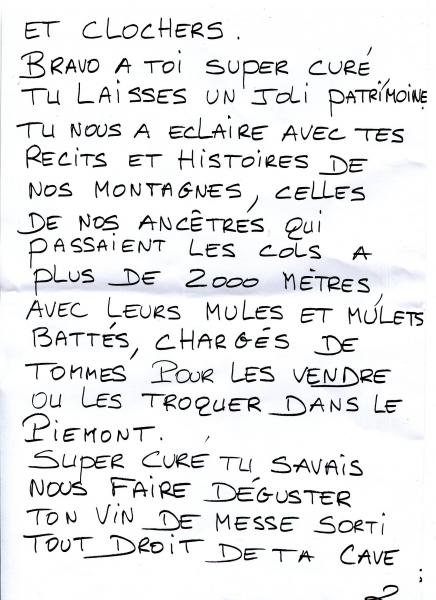 ET CLOCHERS.
BRAVO A TOI SUPER CURÉ,
TU LAISSES UN JOLI PATRIMOINE
TU NOUS A ECLAIRE AVEC TES
RECITS ET HISTOIRES DE
NOS MONTAGNES, CELLES
DE NOS ANCÊTRES QUI
PASSAIENT LES COLS A
PLUS DE 2000 MÈTRES,
AVEC LEURS MULES ET MULETS
BATTÉS, CHARGÉS DE
TOMMES POUR LES VENDRE
OU LES TROQUER DANS LE
PIEMONT.
SUPER CURE TU SAVAIS
NOUS FAIRE DÉGUSTER
TON VIN DE MESSE SORTI
TOUT DROIT DE TA CAVE